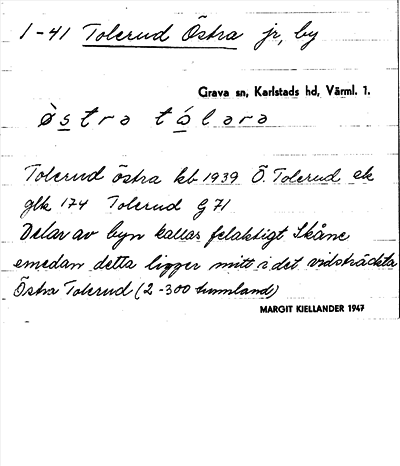 1-41 Tolerud Östra jr, by
Grava sn, Karlstads hd, Värml. 1.
östra tólərə
Tolerud östra kb 1939 Ö. Tolerud ek
glk 174 Tolerud G 71
Delar av byn kallas felaktigt Skåne
emedan detta ligger mitt i det vidsträckta
Östra Tolerud (2-300 tunnland)
MARGIT KIELLANDER 1947